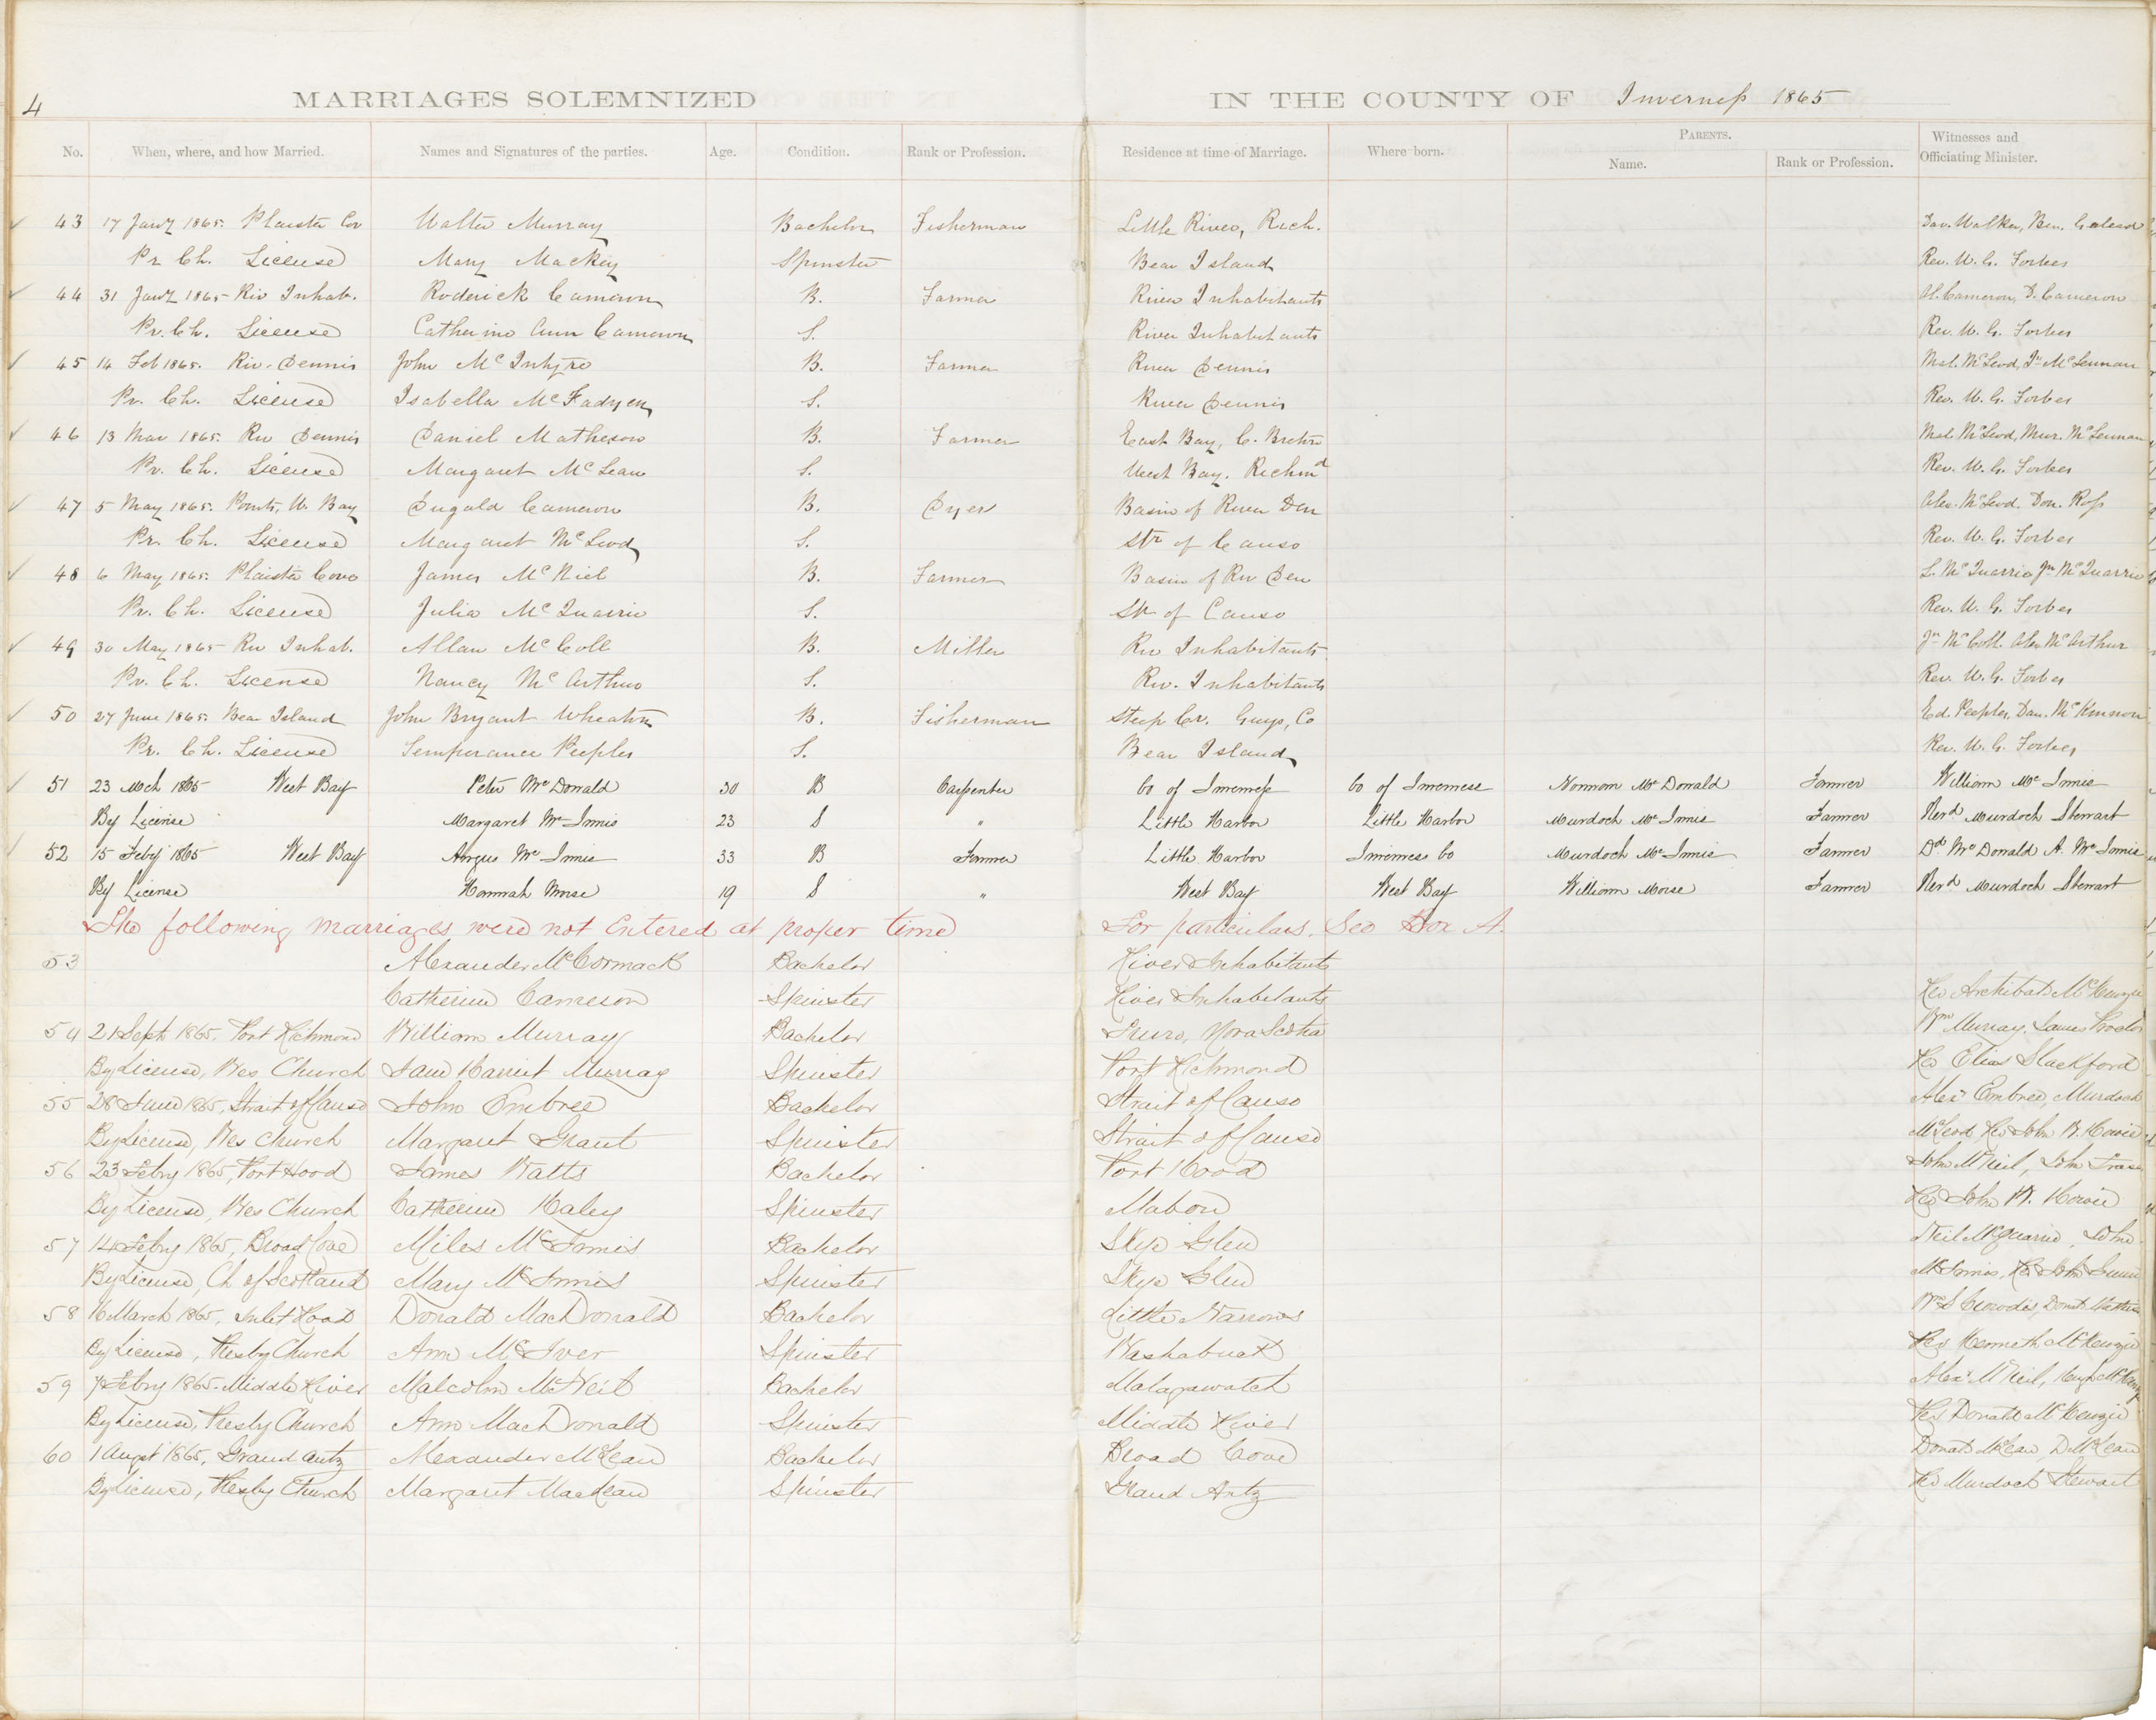 4
MARRIAGES SOLEMNIZED IN THE COUNTY OF Inverness 1865
No. When, where, and how Married. Names and Signatures of the parties. Age. Condition. Rank or Profession. Residence at time of Marriage. Where born. PARENTS. Name. Rank or Profession. Witnesses and Officiating Minister.
43 17 Jany 1865. Plaister Cov Walter Murray Bachelor Fisherman Little River, Rich. Dav. Walker, Ben.
Pr. Ch. License Mary Mackey Spinster Bear Island Rev. W. G. Forbes
44 31 Jany 1865 Riv Inhab. Roderick Cameron B. Farmer River Inhabitants Cameron, D. Cameron
Pr. Ch. License Catherine Ann Cameron S. River Inhabitants Rev. W. G. Forbes
45 14 Feb 1865. Riv. Dennis John McIntyre B. Farmer River Dennis Mal. McLeod, Jn McLennan
Pr. Ch. License Isabella McFadyen S. River Dennis Rev. W. G. Forbes
46 13 Mar 1865. Riv Dennis Daniel Matheson B. Farmer East Bay, C. Breton Mal. McLeod, Mur. McLennan
Pr. Ch. License Margaret McLean S. West Bay. Richmd Rev. W. G. Forbes
47 5 May 1865. Points, W. Bay Dugald Cameron B. Dyer Basin of River Den Alex. McLeod, Don. Ross
Pr. Ch. License Margaret McLeod S. Str of Canso Rev. W. G. Forbes
48 6 May 1865. Plaister Cove James McNiel B. Farmer Basin of Riv Den L. McQuarrie Jn McQuarrie
Pr. Ch. License Julia McQuarrie S. Str of Canso Rev. W. G. Forbes
49 30 May 1865 Riv Inhab. Allan McColl B. Miller Riv Inhabitants Jn McColl. Alex McArthur
Pr. Ch. License Nancy McArthur S. Riv. Inhabitants Rev. W. G. Forbes
50 27 June 1865. Bear Island John Bryant Wheaton B. Fisherman Steep Cr. Guys, Co Ed. Peeples, Dan. McKinnon
Pr. Ch. License Temperance Peeples S. Bear Island Rev. W. G. Forbes
51 23 Mch 1865 West Bay Peter McDonald 30 B Carpenter Co of Inverness Co of Inverness Norman McDonald Farmer William McInnis
By License Margaret McInnis 23 S " Little Harbor Little Harbor Murdoch McInnis Farmer Revd Murdoch Stewart
52 15 Feby 1865 West Bay Angus McInnis 33 B Farmer Little Harbor Inverness Co Murdoch McInnis Farmer Dd McDonald A. McInnis
By License Hannah Morse 19 S " West Bay West Bay William Morse Farmer Revd Murdoch Stewart
The following marriages were not Entered at proper time For particulars, See Box A.
53 Alexander McCormack Bachelor River Inhabitants
Catherine Cameron Spinster River Inhabitants Rev Archibald McKenzie
54 21 Sept 1865, Port Richmond William Murray Bachelor Truro, Nova Scotia Wm Murray, James Proctor
By License, Wes Church Jane Harriet Murray Spinster Port Richmond Rev Elias Slackford
55 28 June 1865, Strait of Canso John Embree Bachelor Strait of Canso Alexr Embree, Murdoch
By License, Wes Church Margaret Grant Spinster Strait of Canso McLeod, Rev John W. Howie
56 23 Febry 1865, Port Hood James Watts Bachelor Port Hood John McNeil, John Fraser
By License, Wes Church Catherine Haley Spinster Mabou Rev John W. Howie
57 14 Febry 1865, Broad Cove Miles McInnis Bachelor Skye Glen Neil McQuarrie, John
By License, Ch of Scotland Mary McInnis Spinster Skye Glen McInnis, Rev John Gunn
58 16 March 1865, Inlet Road Donald MacDonald Bachelor Little Narrows Crowdis, Donald
By License, Presby Church Ann McIver Spinster Washabuct Rev Kenneth McKenzie
59 7 Febry 1865. Middle River Malcolm McNeil Bachelor Malagawatch Alexr McNeil,
By License, Presby Church Ann MacDonald Spinster Middle River Rev Donald McKenzie
60 1 August 1865, Grand Antz Alexander McLean Bachelor Broad Cove Donald McLean, D. McLean
By License, Presby Church Margaret MacLean Spinster Grand Antz Rev Murdoch Stewart